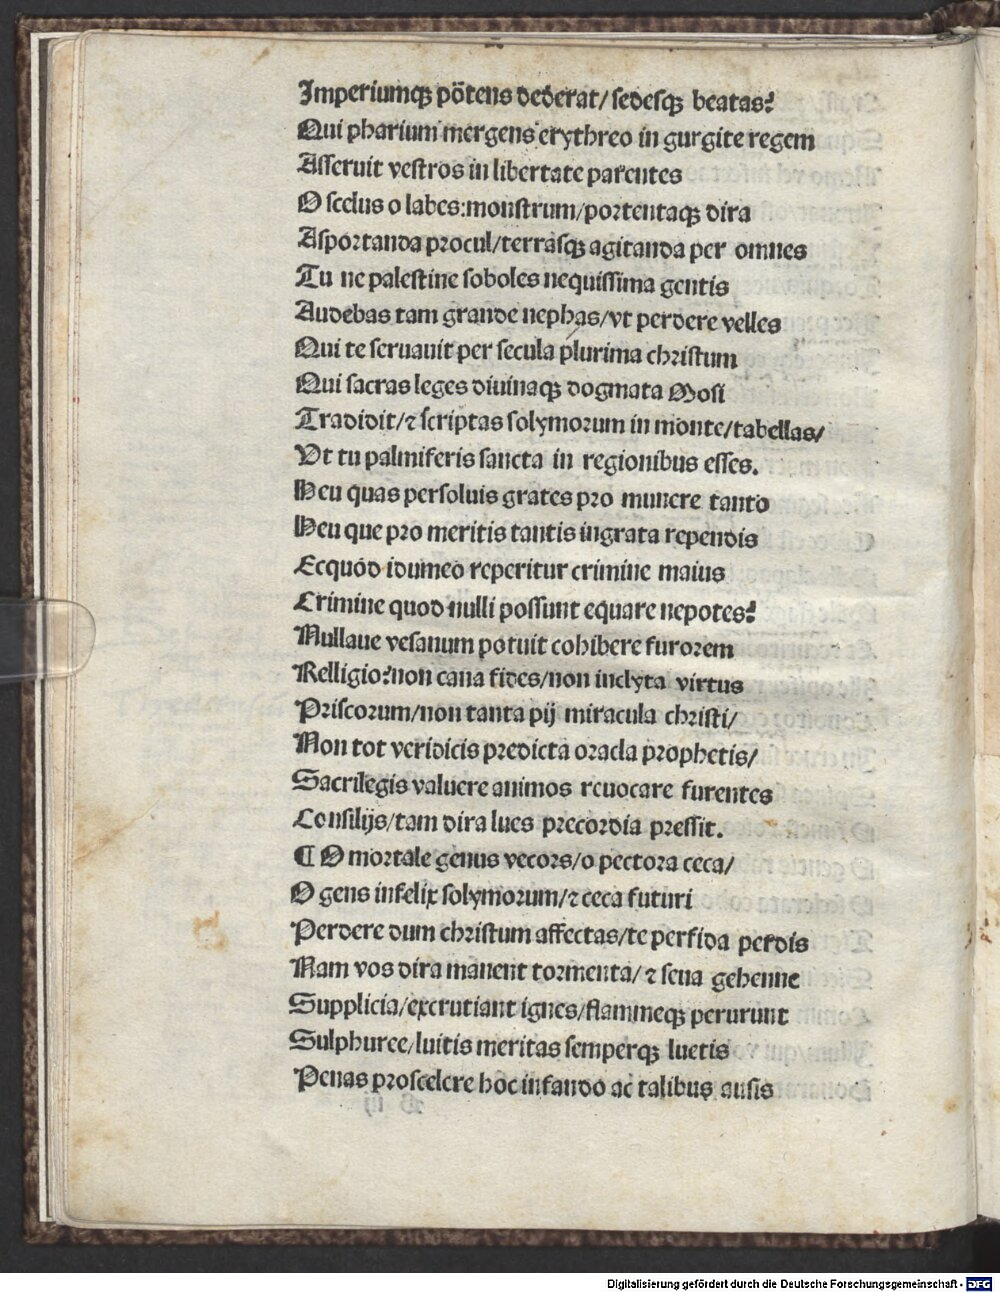 Imperiumqꝫ potens dederat/ sedesqꝫ beatas?
Qui pharium mergens erythreo in gurgite regem
Asseruit vestros in libertate parentes
O scelus o labes: monstrum/portentaqꝫ dira
Asportanda procul/terrasqꝫ agitanda per omnes
Tu ne palestine soboles nequissima gentis
Audebas tam grande nephas/vt perdere velles
Qui te seruauit per secula plurima christum
Qui sacras leges diuinaqꝫ dogmata Mosi
Tradidit/⁊ scriptas solymorum in monte/tabellas/
Vt tu palmiferis sancta in regionibus esses.
Heu quas persoluis grates pro munere tanto
Heu que pro meritis tantis ingrata rependis
Ecquod idumeo reperitur crimine maius
Crimine quod nulli possunt equare nepotes?
Nullaue vesanum potuit cohibere furorem
Relligio? non cana fides/non inclyta virtus
Priscorum/non tanta pij miracula christi/
Non tot veridicis predicta oracla prophetis/
Sacrilegis valuere animos reuocare furentes
Consilijs/tam dira lues precordia pressit.
¶ O mortale genus vecors/o pectora ceca/
O gens infelix solymorum/⁊ ceca futuri
Perdere dum christum affectas/te perfida perdis
Nam vos dira manent tormenta/⁊ seua gehenne
Supplicia/excrutiant ignes/flammeqꝫ perurunt
Sulphuree/luitis meritas semperqꝫ luetis
Penas proscelere hoc infando ac talibus ausis
Digitalisierung gefördert durch die Deutsche Forschungsgemeinschaft - DFG